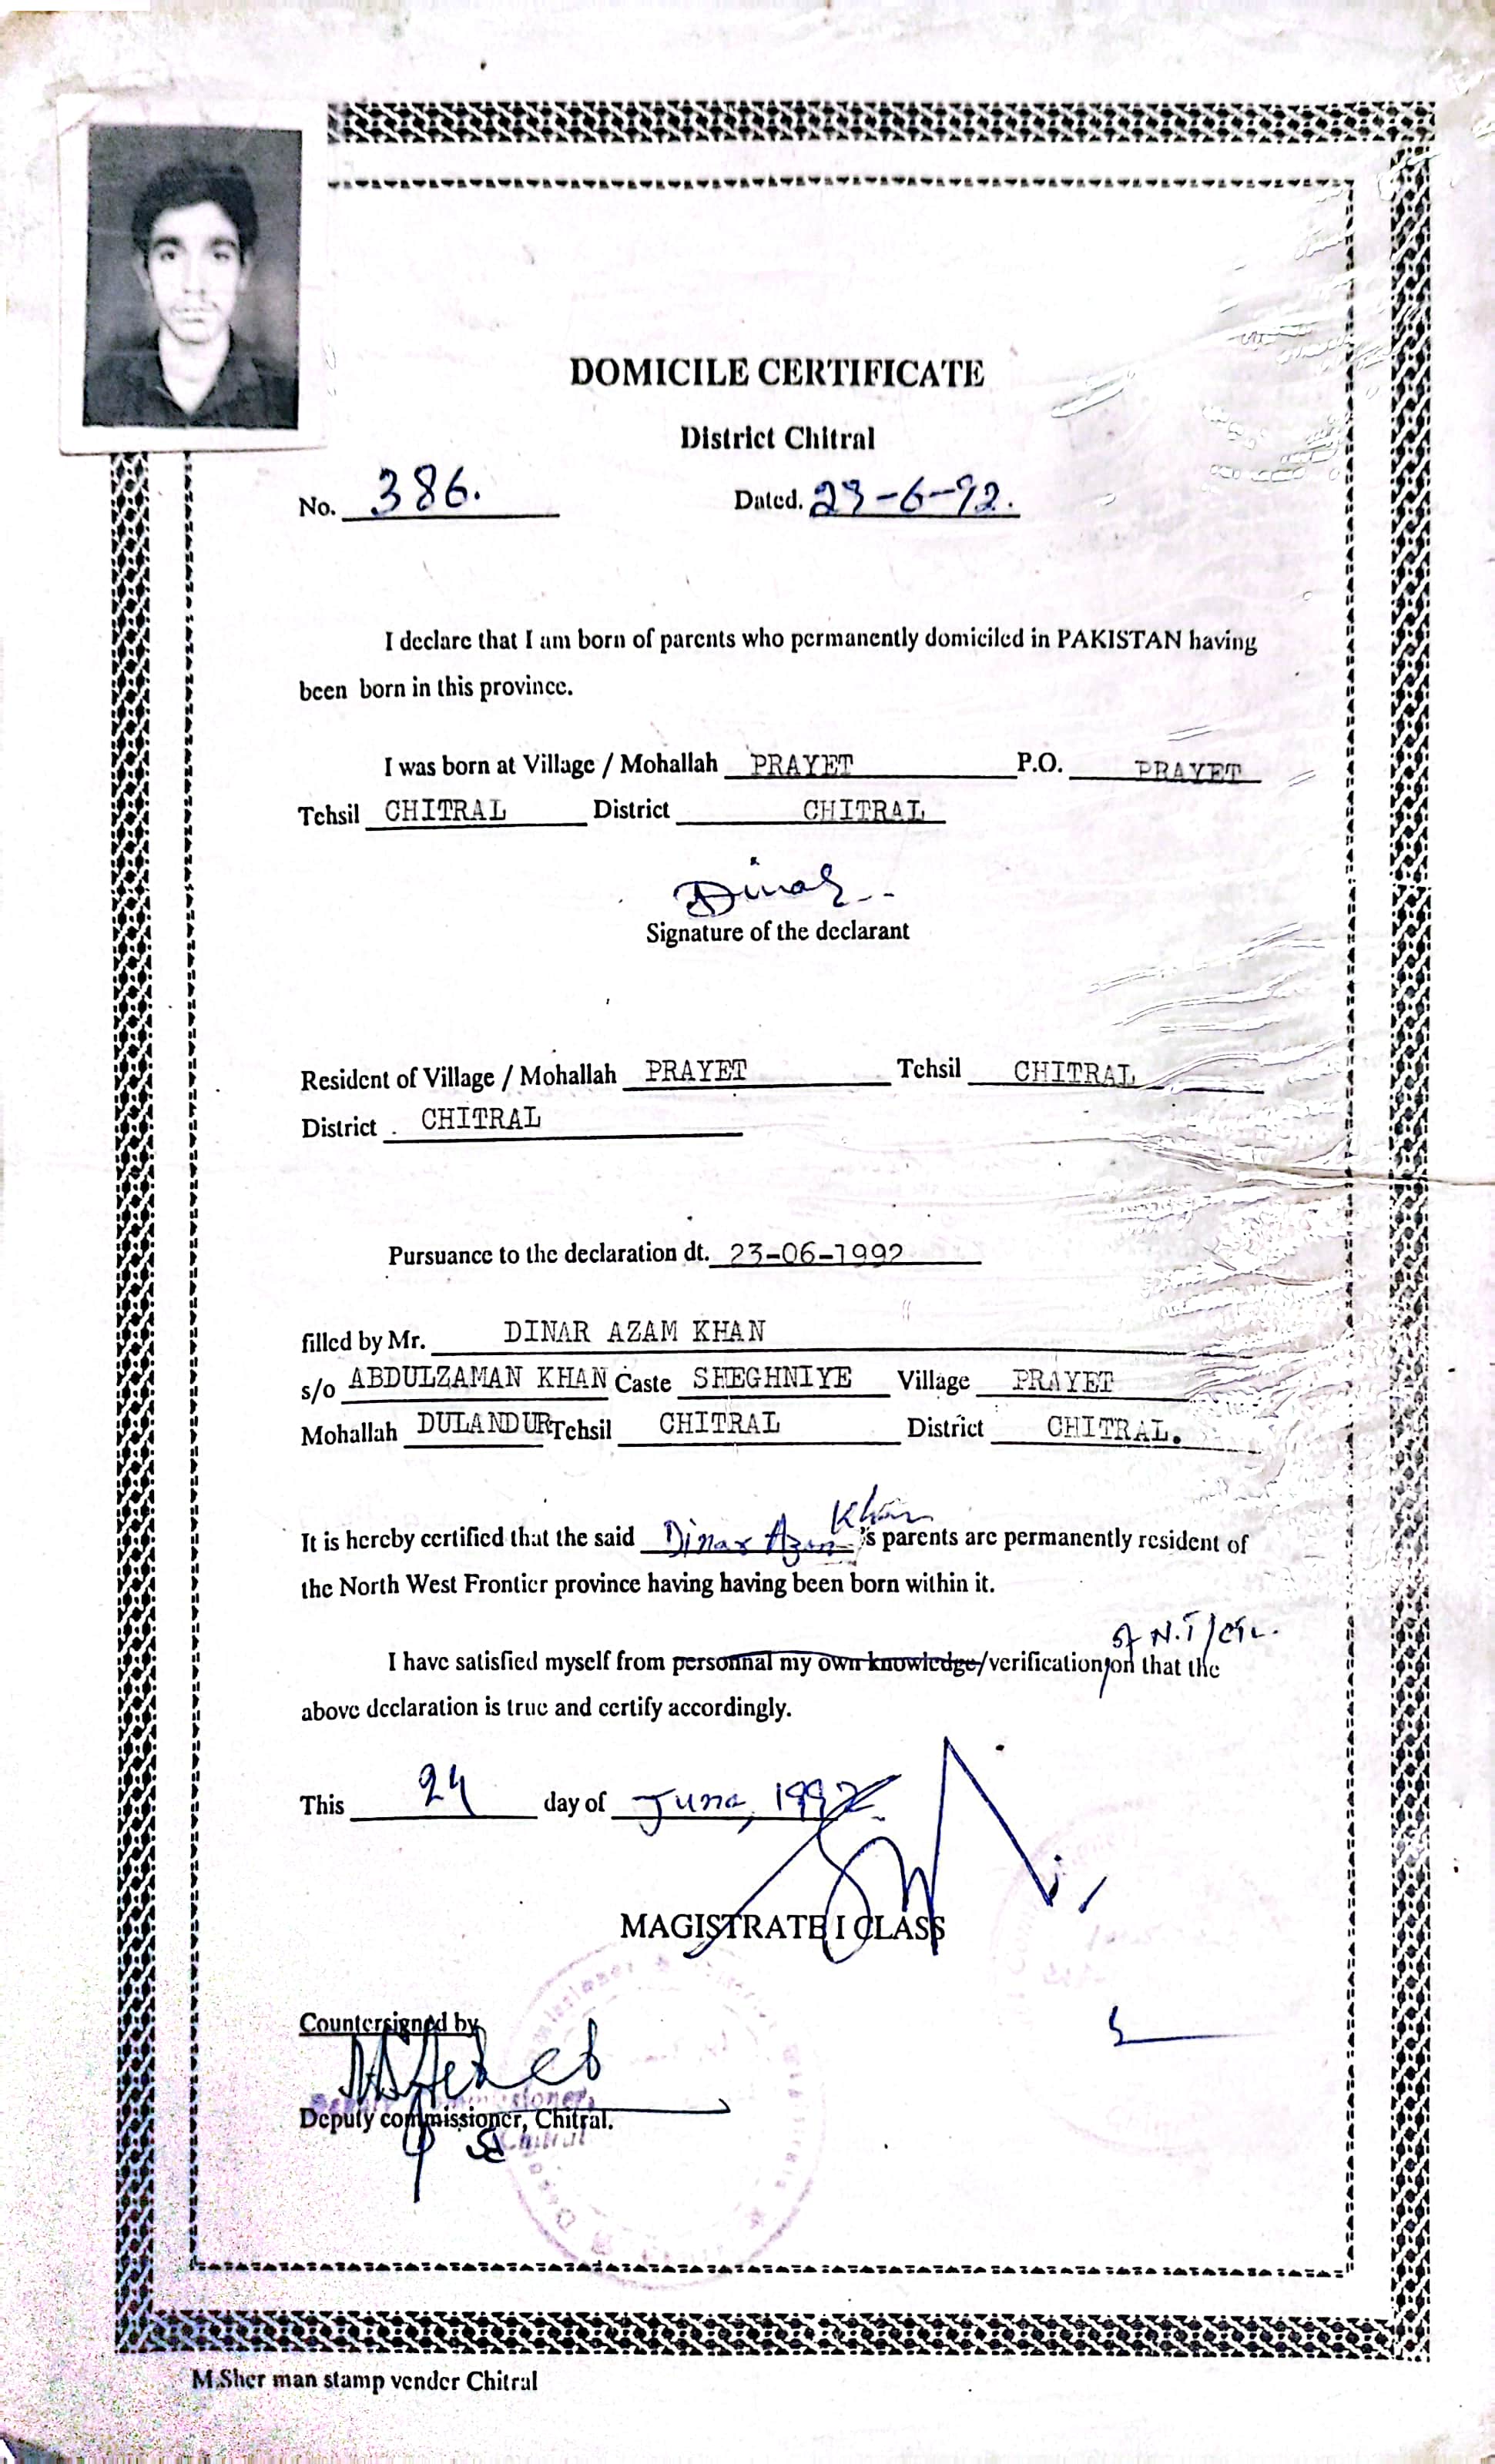 DOMICILE CERTIFICATE
District Chitral
No. 386. Dated. 23-6-92.
I declare that I am born of parents who permanently domiciled in PAKISTAN having
been born in this province.
I was born at Village / Mohallah PRAYET P.O. PRAYET
Tehsil CHITRAL District CHITRAL
Dinar
Signature of the declarant
Resident of Village / Mohallah PRAYET Tehsil CHITRAL
District CHITRAL
Pursuance to the declaration dt. 23-06-1992
filled by Mr. DINAR AZAM KHAN
s/o ABDULZAMAN KHAN Caste SHEGHNIYE Village PRAYET
Mohallah DULANDUR Tehsil CHITRAL District CHITRAL.
It is hereby certified that the said Dinar Azam Khan 's parents are permanently resident of
the North West Frontier province having having been born within it.
of N.T/CTL.
I have satisfied myself from personnal my own knowledge/verification/on that the
above declaration is true and certify accordingly.
This 24 day of June, 1992.
MAGISTRATE I CLASS
Countersigned by
Deputy commissioner,
Chitral
Deputy commissioner, Chitral.
M.Sher man stamp vender Chitral